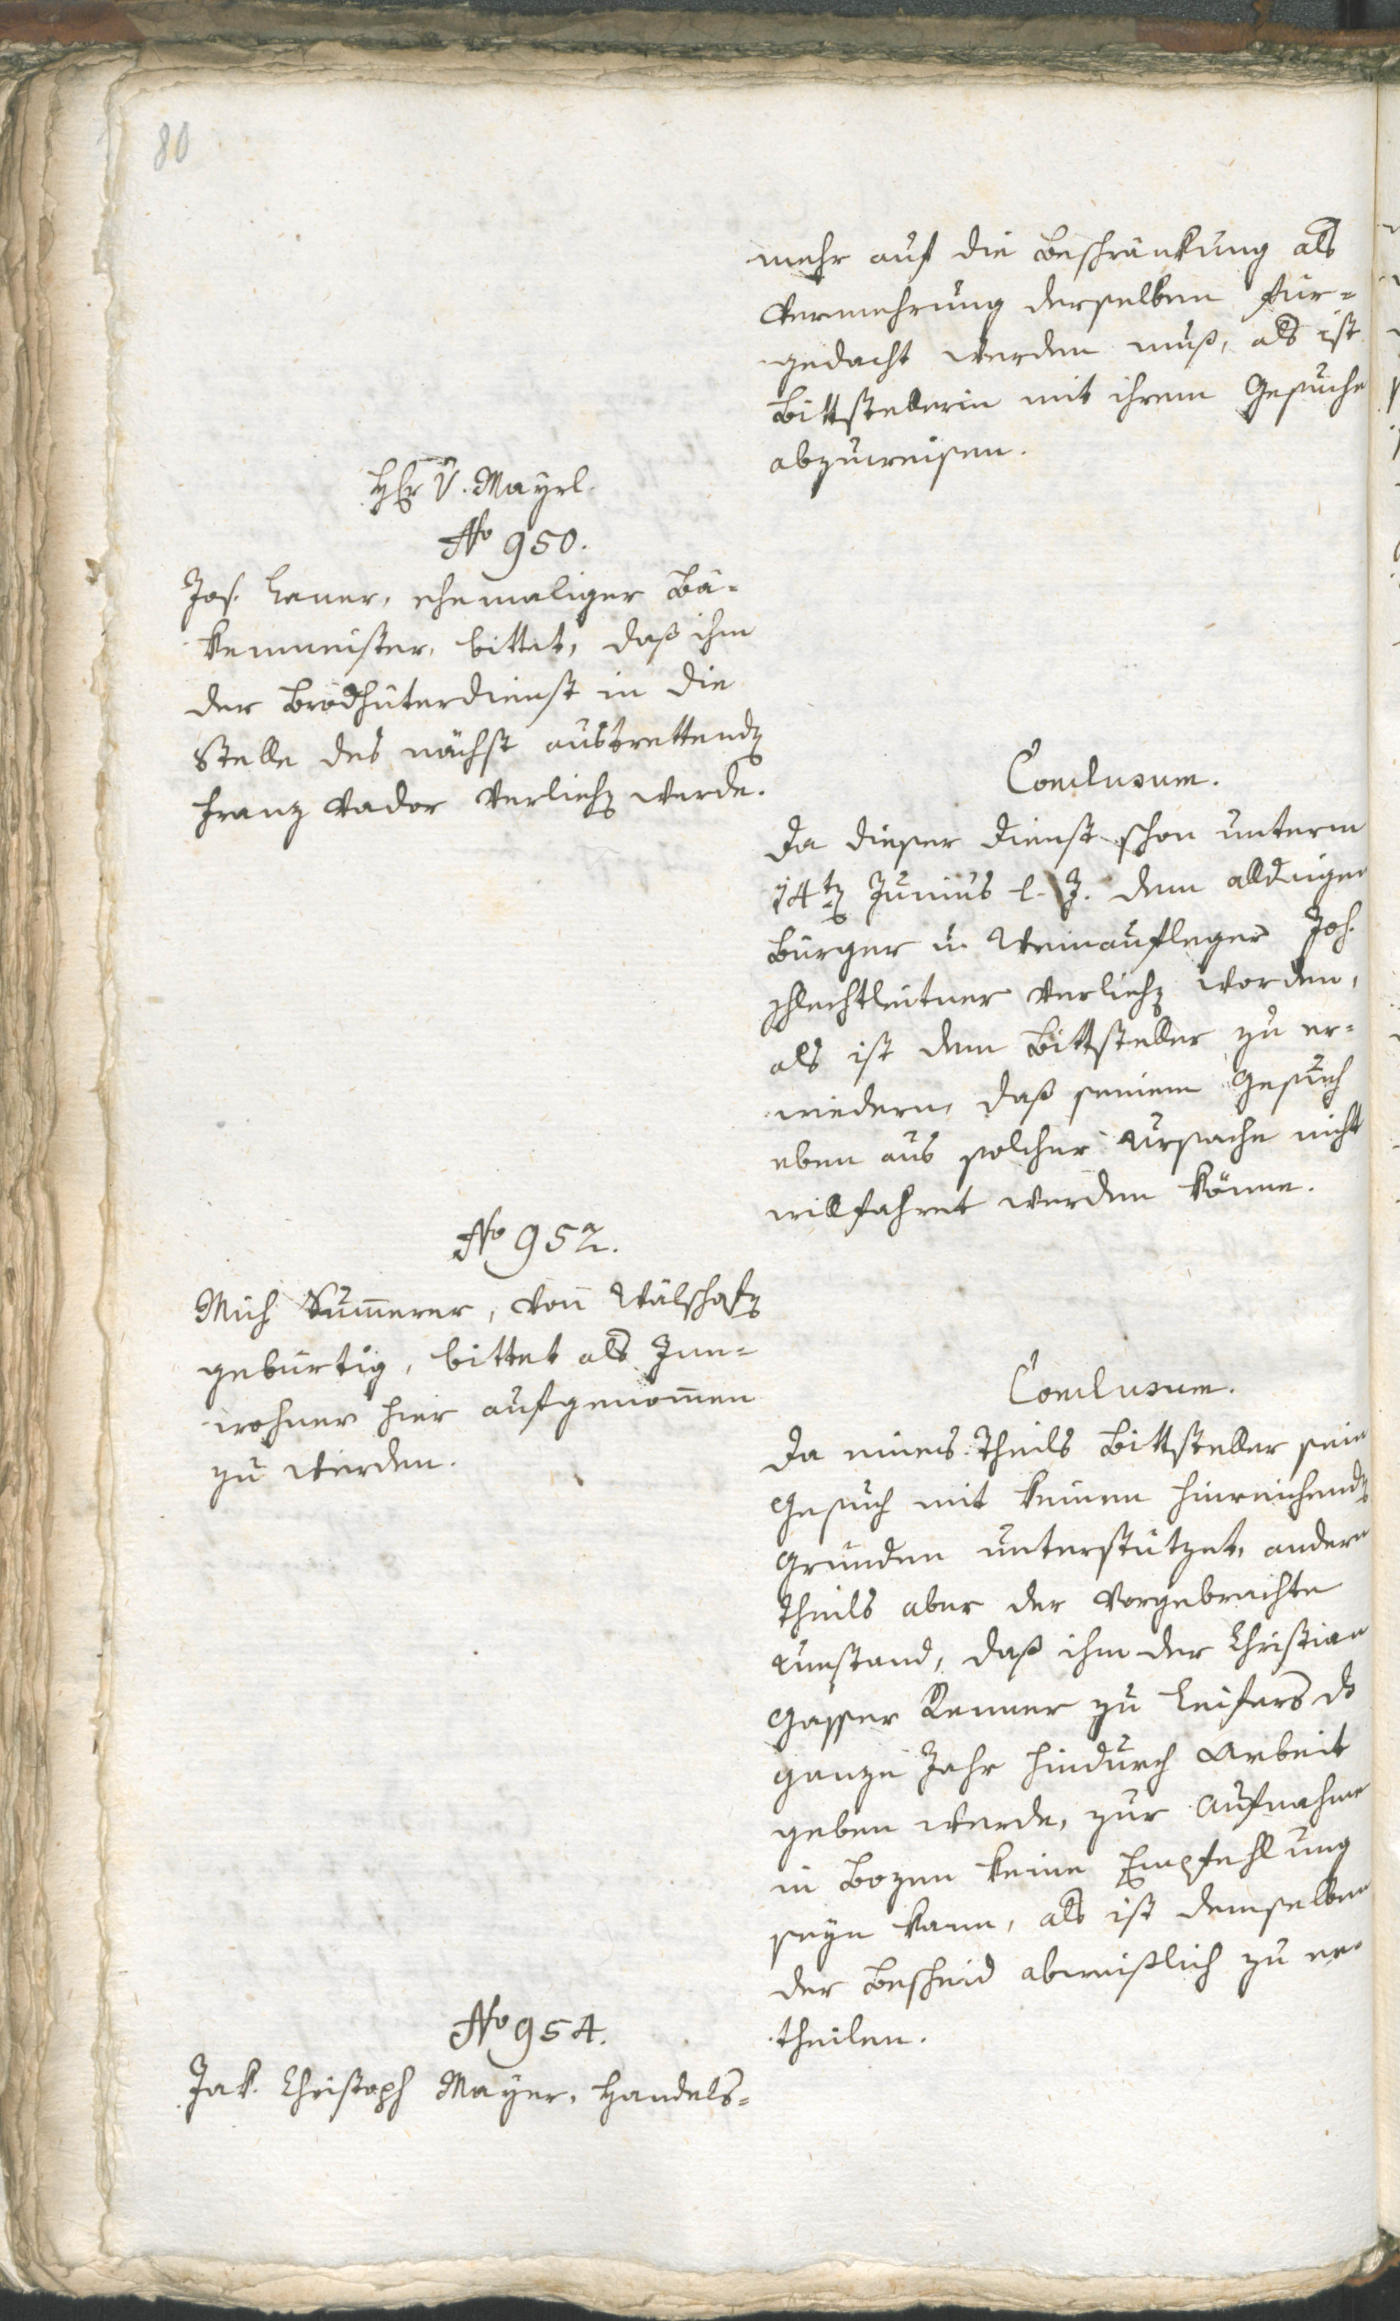 80
mehr auf die Beschränkung als
Vermehrung derselben für-
gedacht werden muß, als ist
Bittstellerin mit ihrem Gesuche
abzuweisen.
Hr v. Mayrl.
No 950.
Jos. Lener, ehemaliger Bä-
kenmeister, bittet, daß ihm
der Brodhüterdienst in die
Stelle des nächst austrettenden
Franz Vador verliehen werde.
Conclusum.
Da dieser Dienst schon unterm
14ten Junius l. J. dem alldaigen
Bürger u. Weinaufleger Joh.
Schlechtleitner verliehen worden,
als ist dem Bittsteller zu er-
wiedern, daß seinem Gesuch
eben aus solcher Ursache nicht
willfahret werden könne.
No 952.
Mich Kummerer, von Wälschofen
gebürtig, bittet als Inn-
wohner hier aufgenommen
zu werden.
Conclusum.
Da eines Theils Bittsteller sein
Gesuch mit keinen hinreichenden
Gründen unterstützet, andern
Theils aber der vorgebrachte
Umstand, daß ihm der Christian
Gasser Renner zu Leifers das
ganze Jahr hindurch Arbeit
geben werde, zur Aufnahme
in Bozen keine Empfehlung
seyn kann, als ist demselben
der Bescheid abweißlich zu er-
theilen.
No 954.
Jak. Christoph Mayer, Handels-